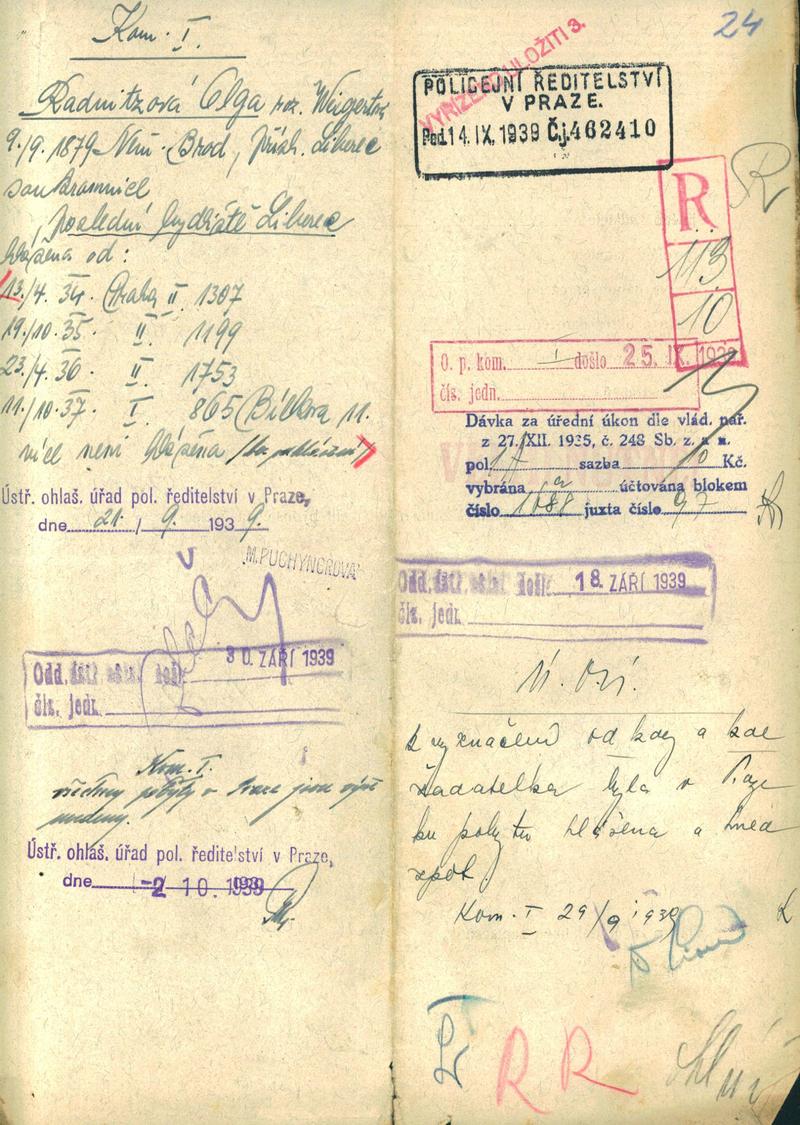 Kom. I.
Radnitzová Olga roz. Weigertová
9./9. 1879 Něm. Brod, přísl. Liberec
soukromnice
poslední bydliště Liberec
hlášena od:
13./4. 34. Praha II. 1307
19./10. 35. II. 1199
23./4. 36 II. 1753
11./10. 37. I. 865 Bílkova 11.
více není hlášena
Ústř. ohlaš. úřad pol. ředitelství v Praze,
dne 21. / 9. 1939.
M. PUCHYNGROVÁ
30. ZÁŘÍ 1939
čís. jedn.
Kom. I.
všechny pobyty v Praze jsou výše
uvedeny.
Ústř. ohlaš. úřad pol. ředitelství v Praze,
dne -2 10. 1939
24
VYŘÍZENO ULOŽITI 3.
POLICEJNÍ ŘEDITELSTVÍ
V PRAZE.
Pod. 14. IX. 1939 Čj. 462410
R
R
113
10
O. p. kom. I došlo 25. IX. 1939
čís. jedn.
Dávka za úřední úkon dle vlád. nař.
z 27./XII. 1935, č. 248 Sb. z. a n.
pol. 17 sazba 10 Kč.
vybrána a účtována blokem
číslo 1688 juxta číslo 97
18. ZÁŘÍ 1939
čís. jedn.
Ú. O. ú.
k vyznačení od kdy a kde
žadatelka byla v Praze
ku pobytu hlášena a hned
zpět.
Kom. I 29/9 1939
R R